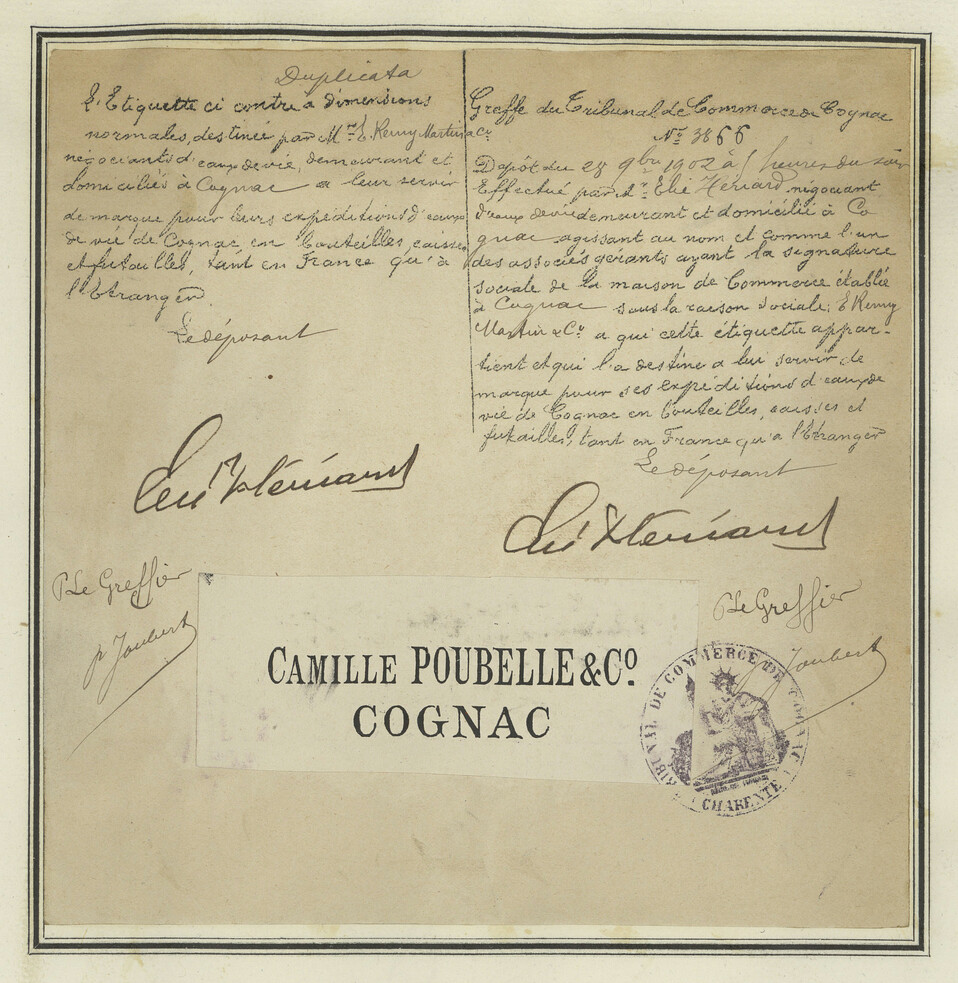 Duplicata
L'Etiquette ci contre a dimensions
normales, destinée par Mrs E. Remy Martin & Co
négociants d'eaux de vie, demeurant et
domiciliés à Cognac a leur servir
de marque pour leurs expéditions d'eaux
de vie de Cognac en bouteilles, caisses
et futailles, tant en France qu'à
l'Etranger.
Le déposant
Greffe du Tribunal de Commerce de Cognac
No 3866
Dépôt du 28 9bre 1902 à 5 heures du soir
Effectué par Mr Elie Hériard négociant
d'eaux de vie demeurant et domicilié à Co
gnac agissant au nom et comme l'un
des associés gérants ayant la signature
sociale de la maison de Commerce établie
à Cognac sous la raison sociale: E Remy
Martin & Co a qui cette étiquette appar-
tient et qui l'a destine a lui servir de
marque pour ses expéditions d'eaux de
vie de Cognac en bouteilles, caisses et
futailles, tant en France qu'a l'Etranger
Le déposant
Hériard
Hériard
P Le Greffier
p Joubert
P Le Greffier
Joubert
CAMILLE POUBELLE & CO.
COGNAC
TRIBUNAL DE COMMERCE DE COGNAC
CHARENTE